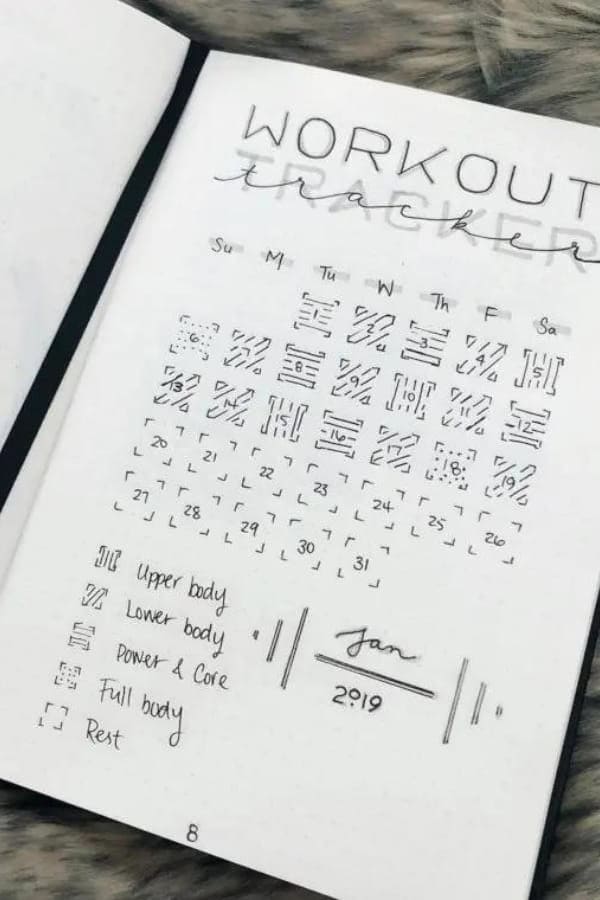 WORKOUT
TRACKER
tracker
Su M Tu W Th F Sa
1 2 3 4 5
6 7 8 9 10 11 12
13 14 15 16 17 18 19
20 21 22 23 24 25 26
27 28 29 30 31
Upper body
Lower body
Power & Core
Full body
Rest
Jan
2019
8